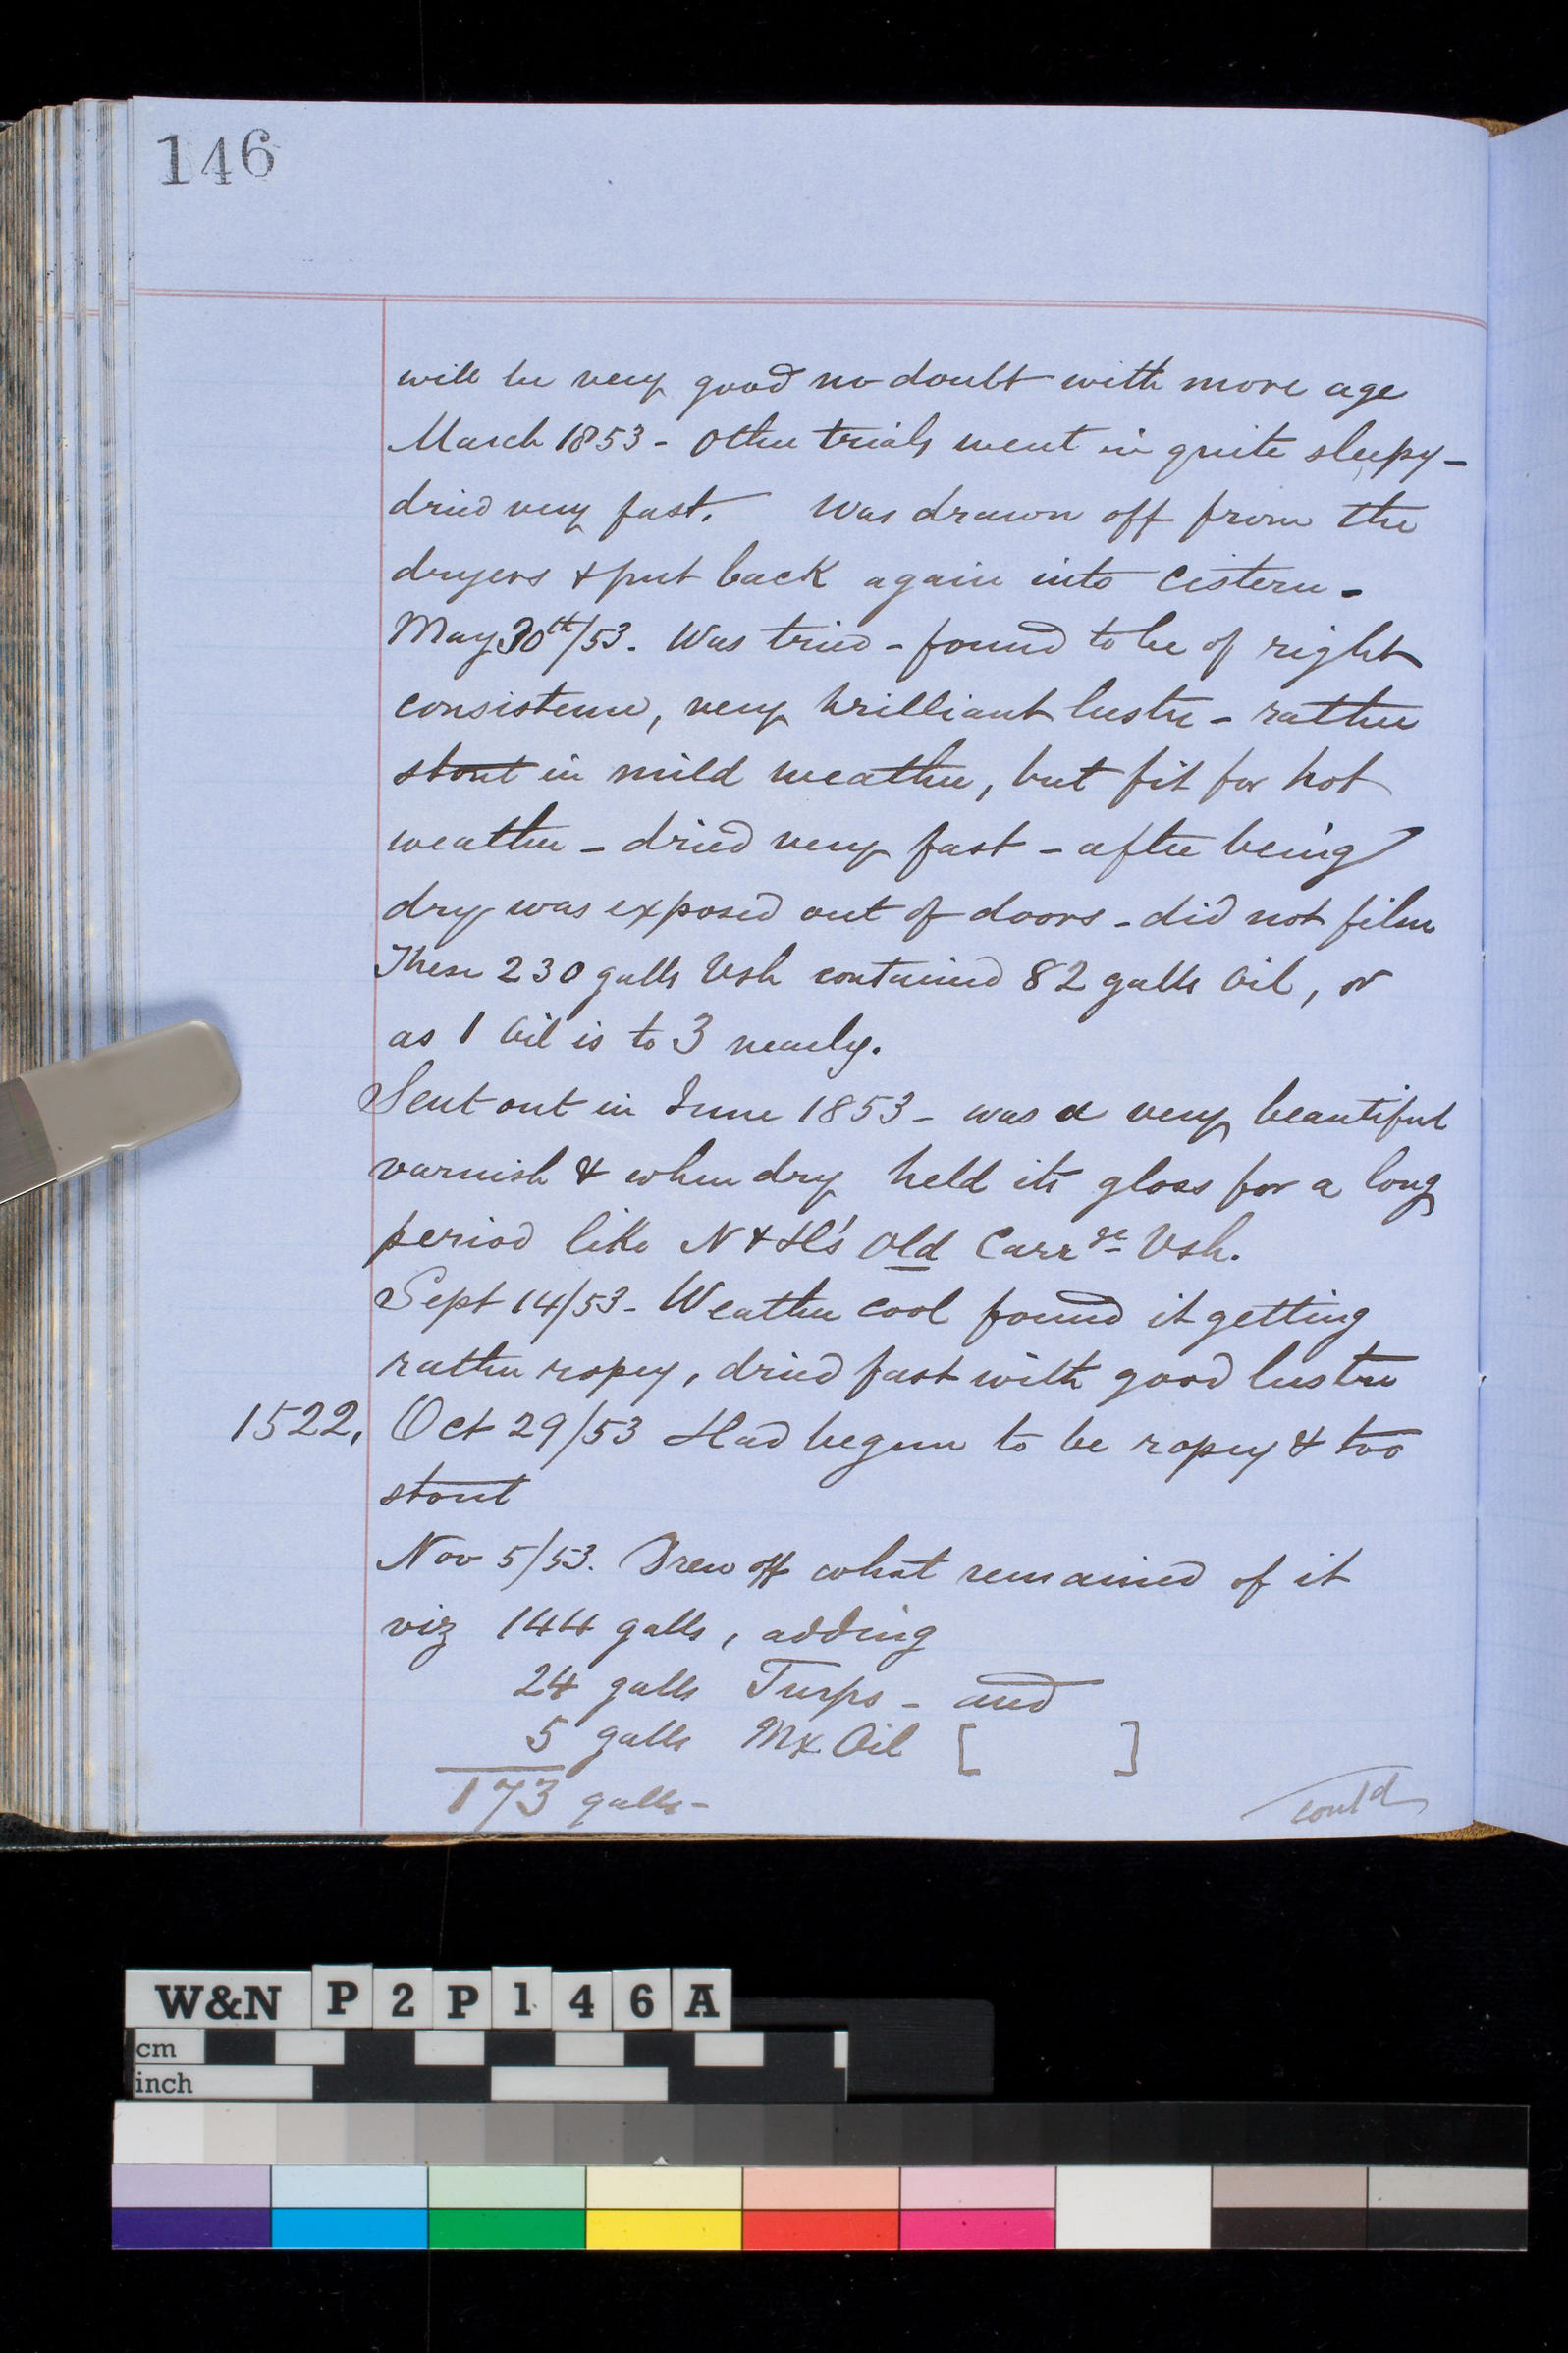 146
will be very good no doubt with more age
March 1853 - Other trials went in quite sleepy -
dried very fast. Was drawn off from the
dryers & put back again into Cistern -
May 30th/53. Was tried - found to be of right
consistence, very brilliant lustre - rather
stout in mild weather, but fit for hot
weather - dried very fast - after being
dry was exposed out of doors - did not film
These 230 galls Vsh contained 82 galls Oil, or
as 1 Oil is to 3 nearly.
Sent out in June 1853 - was a very beautiful
varnish & when dry held its gloss for a long
period like N & H's Old Carrge Vsh.
Sept 14/53 - Weather cool found it getting
rather ropey, dried fast with good lustre
1522, Oct 29/53 Had begun to be ropey & too
stout
Nov 5/53. Drew off what remained of it
viz 144 galls, adding
24 galls Turps - and
5 galls Mx Oil [ ]
173 galls -
contd
W&N P2P146A
cm
inch